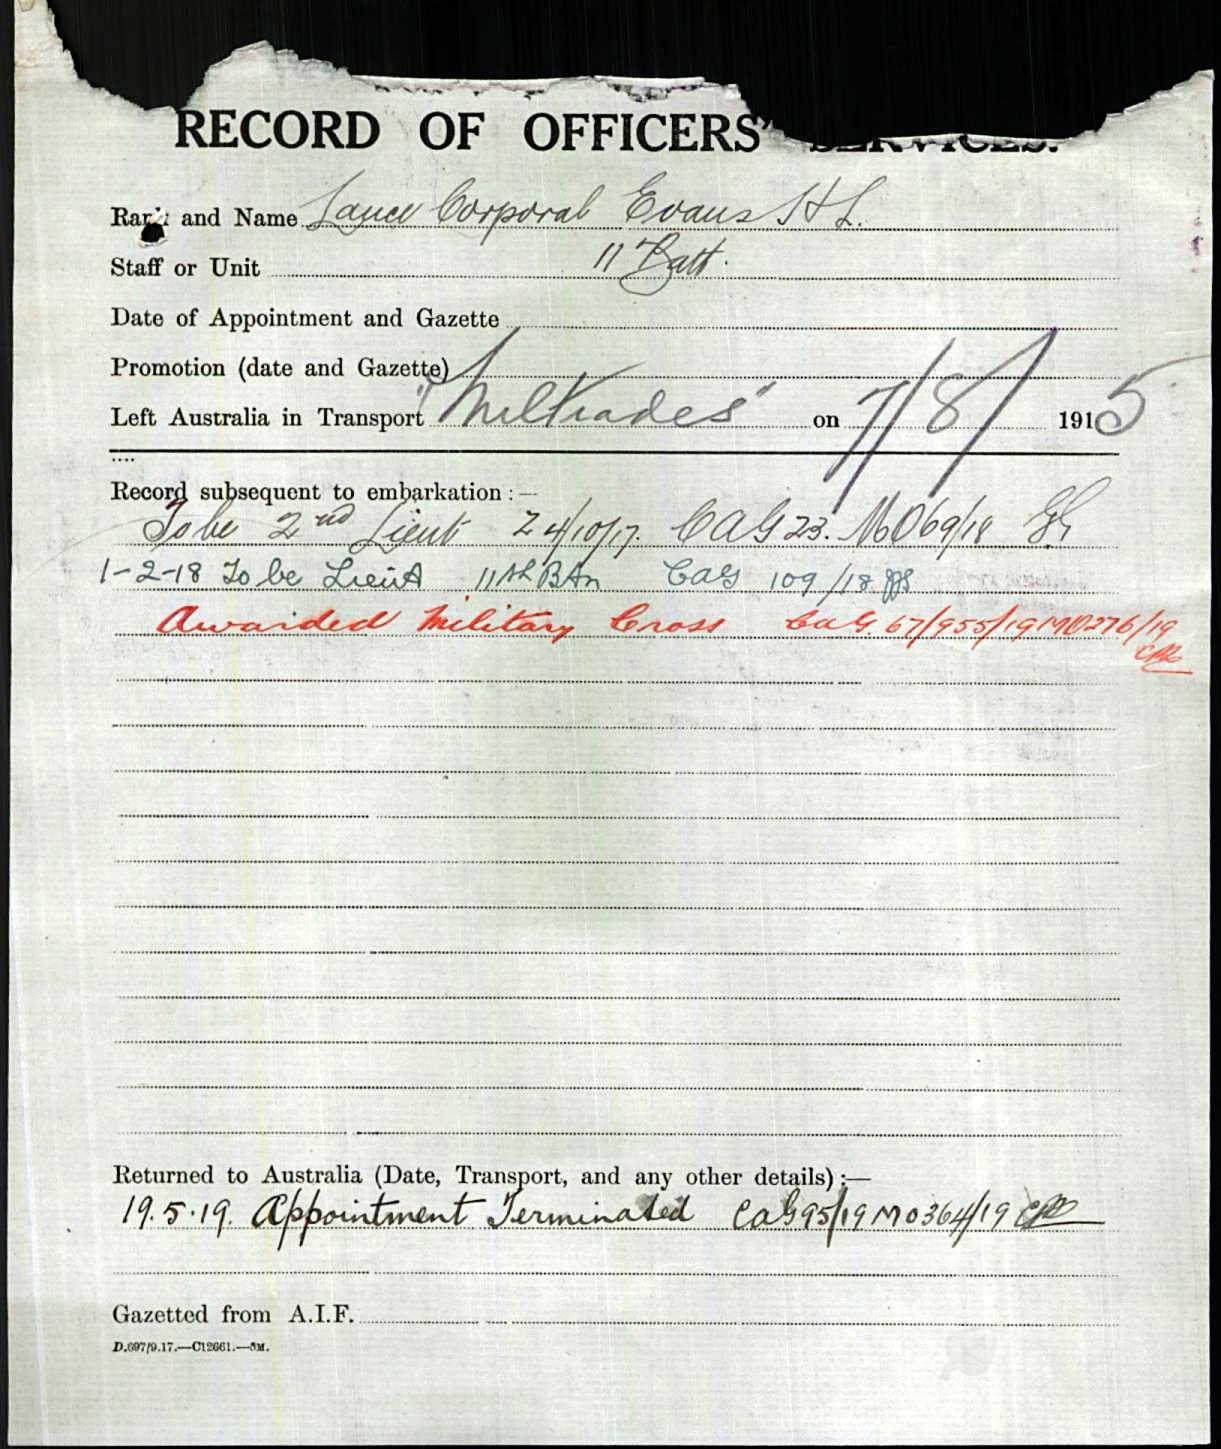 RECORD OF OFFICERS' SERVICES.
Rank and Name Lance Corporal Evans H L.
Staff or Unit 11 Batt.
Date of Appointment and Gazette
Promotion (date and Gazette)
Left Australia in Transport "Miltiades" on 7/8/ 1915
Record subsequent to embarkation :—
To be 2nd Lieut 24/10/17. CAG 23. MO 69/18
1-2-18 To be Lieut 11th BAn CAG 109/18
Awarded Military Cross CaG. 67/955/19 MO276/19
Returned to Australia (Date, Transport, and any other details) :—
19.5.19. Appointment Terminated CaG 95/19 MO364/19
Gazetted from A.I.F.
D.697/9.17.—C12661.—5M.